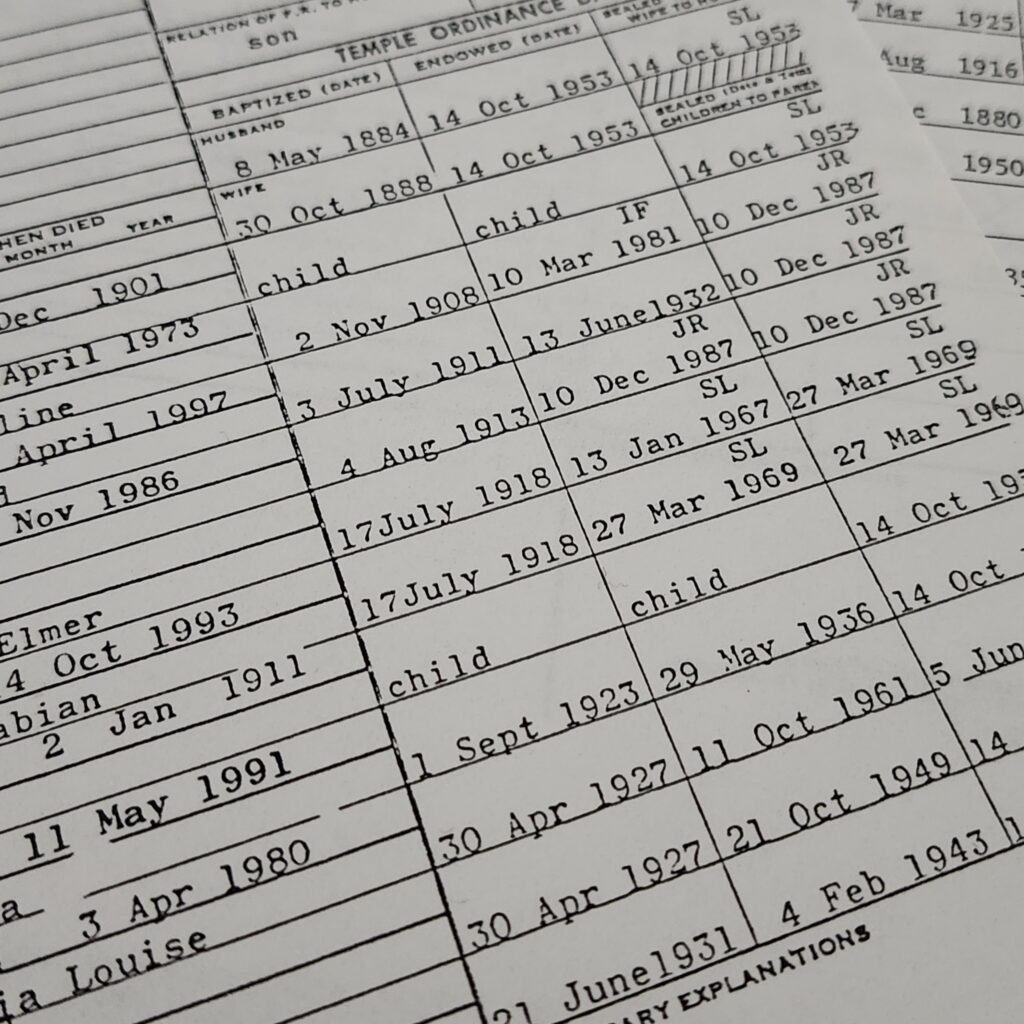 RELATION OF F.R. TO
son
TEMPLE ORDINANCE
BAPTIZED (DATE) ENDOWED (DATE) SEALED
WIFE TO
HUSBAND SL
8 May 1884 14 Oct 1953 14 Oct 1953
WIFE SEALED (Date & Temple)
CHILDREN TO PARENTS
30 Oct 1888 14 Oct 1953 SL
child child 14 Oct 1953
IF JR
2 Nov 1908 10 Mar 1981 10 Dec 1987
JR
3 July 1911 13 June1932 10 Dec 1987
JR JR
4 Aug 1913 10 Dec 1987 10 Dec 1987
SL SL
17July 1918 13 Jan 1967 27 Mar 1969
SL SL
17July 1918 27 Mar 1969 27 Mar 1969
child child 14 Oct
1 Sept 1923 29 May 1936 14 Oct
30 Apr 1927 11 Oct 1961 5 Jun
30 Apr 1927 21 Oct 1949 14
21 June1931 4 Feb 1943
ARY EXPLANATIONS
HEN DIED
MONTH YEAR
Dec 1901
April 1973
line
April 1997
Nov 1986
Elmer
4 Oct 1993
abian
2 Jan 1911
11 May 1991
a
3 Apr 1980
ia Louise
7 Mar 1925
Aug 1916
c 1880
1950